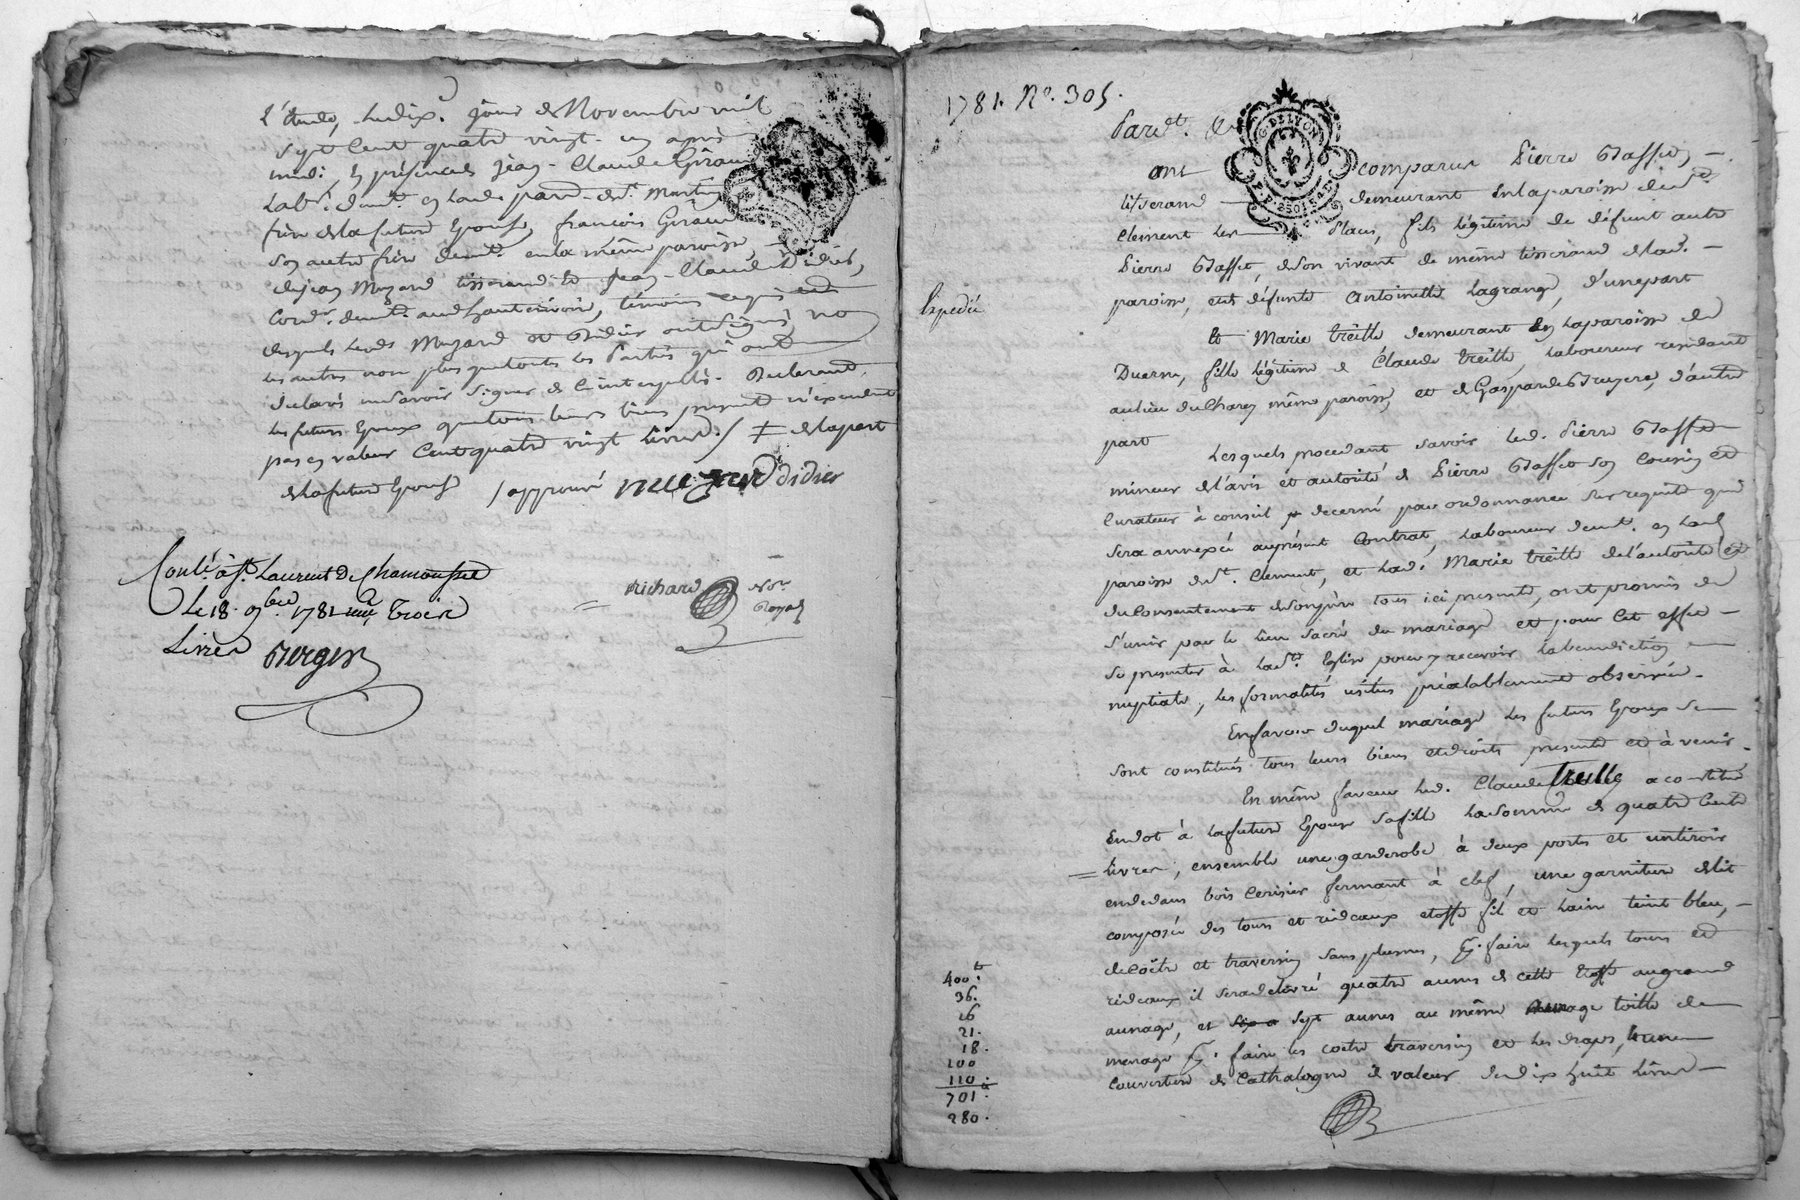 L'étude, le dix. jour de Novembre mil
sept cent quatre vingt un après
midi, en présence de Jean-Claude Giraud
Lab.r demt. en lad. par. de St. Martin
frère de la future Epouse, françois Giraud
son autre frère demt. en la même paroisse,
de jean Mozard tisserand et Jean-Claude Didier,
demt. aud. hauterivoire, témoins requis
desquels lesds. Mozard et Didier ont signé, no
les autres non plus que toutes les Parties qui ont
déclaré ne savoir signer de ce interpellés. Declarant
les futurs Epoux que tous leurs biens presents n'excedent
pas en valeur Cent quatre vingt Livres./ ‡ de la part
de la future Epouse / approuvé Mozard didier
Conlé. à St. Laurent De Chamousset
Le 18. 9bre 1781 Trois
Livres Berger
Richard Nore
Royal
1781. No. 305.
Pard.t
G. DE LYON
ont comparu Pierre
tisserand demeurant en la paroisse de St.
Clement les Places, fils légitime de défunt autre
Pierre, de son vivant de même tisserand de lad.
paroisse, et de défunte Antoinette Lagrange, d'une part
Expedié
Et Marie treille demeurant en la paroisse de
Duerne, fille légitime de Claude treille, Laboureur residant
au lieu du Charez même paroisse, et de Gasparde Bruyere, d'autre
part
Lesquels procedant savoir led. Pierre
mineur de l'avis et autorité de Pierre son Cousin et
Curateur à conseil decerné par ordonnance sur requête qui
sera annexée au présent Contrat, Laboureur demt. en lad.
paroisse de St. Clement, et lad. Marie treille de l'autorité et
du Consentement de son père tous ici presents, ont promis de
s'unir par le lien sacré du mariage et pour Cet effet
se presenter à la Ste. Eglise pour y recevoir la benediction
nuptiale, les formalités usitées préalablement observées.
En faveur duquel mariage les futurs Epoux se
sont constitués tous leurs biens et droits presents et à venir.
En même faveur led. Claude treille a constitué
en dot à la future Epouse sa fille la somme de quatre Cents
Livres, ensemble une garderobe à deux portes et un tiroir
en dedans bois Cerisier fermant à clef, une garniture de lit
composée des tours et rideaux etoffe fil et laine teint bleu,
de coëtre et traversin sans plumes, pr. faire lesquels tours et
rideaux il sera delivré quatre aunes de cette etoffe au grand
aunage, et six a sept aunes au même aunage toille de
menage pr. faire les coetre traversin et les draps, une
Couverture de Cathalogne de valeur de dix huit Livres
400.
36.
16
21.
18.
100
110.
701.
280.